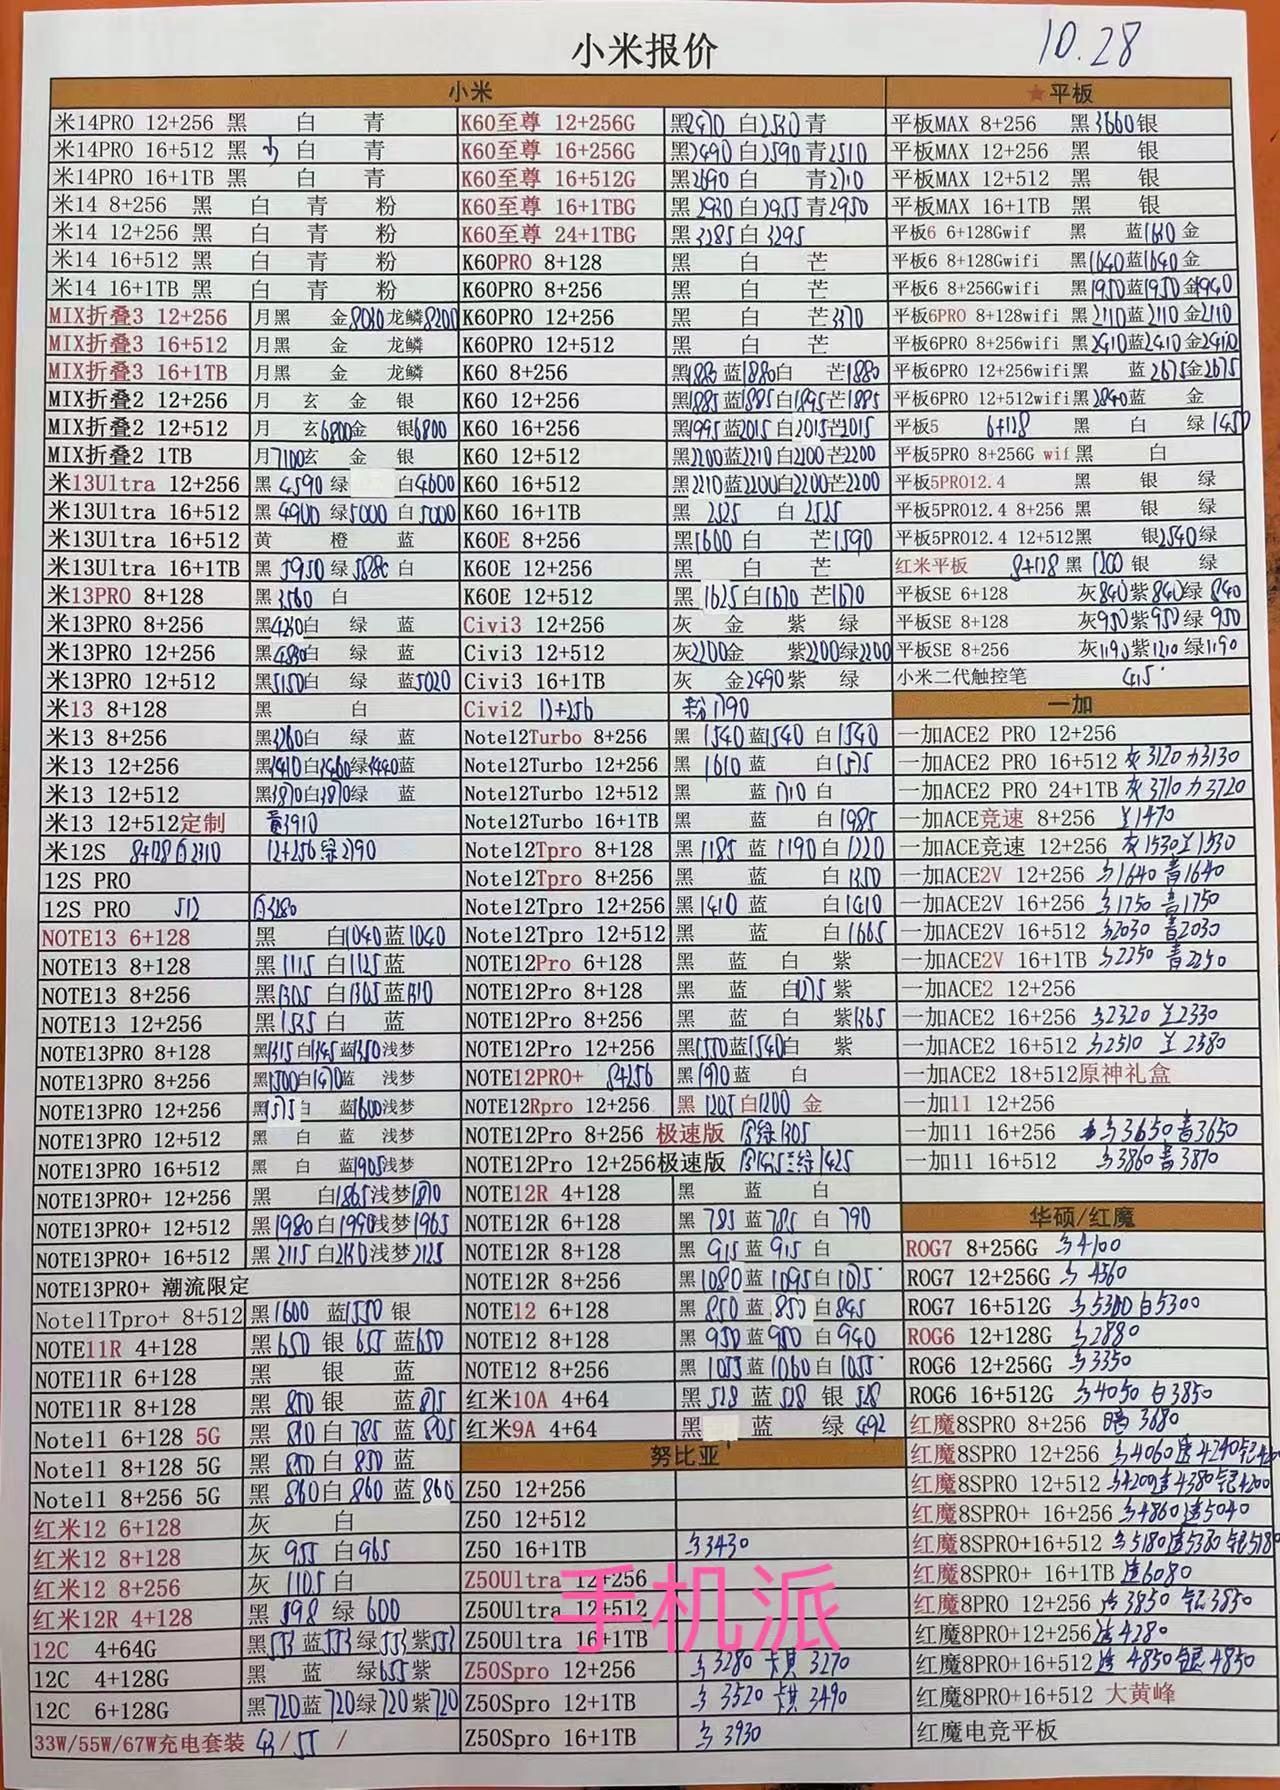 小米报价
10.28
小米
米14PRO 12+256 黑 白 青
米14PRO 16+512 黑 白 青
米14PRO 16+1TB 黑 白 青
米14 8+256 黑 白 青 粉
米14 12+256 黑 白 青 粉
米14 16+512 黑 白 青 粉
米14 16+1TB 黑 白 青 粉
MIX折叠3 12+256 月黑 金8030龙鳞8200
MIX折叠3 16+512 月黑 金 龙鳞
MIX折叠3 16+1TB 月黑 金 龙鳞
MIX折叠2 12+256 月 玄 金 银
MIX折叠2 12+512 月 玄6800金 银6800
MIX折叠2 1TB 月7100玄 金 银
米13Ultra 12+256 黑 4590 绿 白4600
米13Ultra 16+512 黑 4900 绿5000 白5000
米13Ultra 16+512 黄 橙 蓝
米13Ultra 16+1TB 黑 5950 绿 5880 白
米13PRO 8+128 黑3560 白
米13PRO 8+256 黑4250白 绿 蓝
米13PRO 12+256 黑4830白 绿 蓝
米13PRO 12+512 黑5150白 绿 蓝5020
米13 8+128 黑 白
米13 8+256 黑3260白 绿 蓝
米13 12+256 黑3410白3460绿3440蓝
米13 12+512 黑3870白3870绿 蓝
米13 12+512定制 3910
米12S 8+128白2310 12+256绿2790
12S PRO
12S PRO 512 白3280
NOTE13 6+128 黑 白1040蓝1040
NOTE13 8+128 黑1115 白1125蓝
NOTE13 8+256 黑1305 白1305蓝1310
NOTE13 12+256 黑1535白 蓝
NOTE13PRO 8+128 黑1315白1345蓝1350浅梦
NOTE13PRO 8+256 黑1500白1470蓝 浅梦
NOTE13PRO 12+256 黑1575白 蓝1600浅梦
NOTE13PRO 12+512 黑 白 蓝 浅梦
NOTE13PRO 16+512 黑 白 蓝1905浅梦
NOTE13PRO+ 12+256 黑 白1865浅梦1870
NOTE13PRO+ 12+512 黑1980白1990浅梦1965
NOTE13PRO+ 16+512 黑2115白2130浅梦2125
NOTE13PRO+ 潮流限定
Note11Tpro+ 8+512 黑1600 蓝1550 银
NOTE11R 4+128 黑650 银 655 蓝650
NOTE11R 6+128 黑 银 蓝
NOTE11R 8+128 黑 850 银 蓝875
Note11 6+128 5G 黑 810 白 785 蓝 805
Note11 8+128 5G 黑 850 白 850 蓝
Note11 8+256 5G 黑 860白 860 蓝 860
红米12 6+128 灰 白
红米12 8+128 灰 955 白965
红米12 8+256 灰 1105 白
红米12R 4+128 黑 598 绿 600
12C 4+64G 黑553 蓝553绿553紫553
12C 4+128G 黑 蓝 绿655紫
12C 6+128G 黑720蓝 720绿 720 紫720
33W/55W/67W充电套装 43/55 /
K60至尊 12+256G 黑2470 白2530青
K60至尊 16+256G 黑2490白2590青2510
K60至尊 16+512G 黑2690 白 青2710
K60至尊 16+1TBG 黑2930白2955青2950
K60至尊 24+1TBG 黑3285白3295
K60PRO 8+128 黑 白 芒
K60PRO 8+256 黑 白 芒
K60PRO 12+256 黑 白 芒2370
K60PRO 12+512 黑 白 芒
K60 8+256 黑1880 蓝1880白 芒1880
K60 12+256 黑1885蓝1885白1895芒1885
K60 16+256 黑1995蓝2015白2015芒2015
K60 12+512 黑2200蓝2210白2200芒2200
K60 16+512 黑2210蓝2200白2200芒2200
K60 16+1TB 黑 2525 白 2525
K60E 8+256 黑1600 白 芒1590
K60E 12+256 黑 白 芒
K60E 12+512 黑 1625白1670 芒1670
Civi3 12+256 灰 金 紫 绿
Civi3 12+512 灰2200金 紫2200绿2200
Civi3 16+1TB 灰 金2490紫 绿
Civi2 12+256 粉1790
Note12Turbo 8+256 黑 1540 蓝1540 白1540
Note12Turbo 12+256 黑 1610 蓝 白1575
Note12Turbo 12+512 黑 蓝1710 白
Note12Turbo 16+1TB 黑 蓝 白1985
Note12Tpro 8+128 黑1185 蓝1190白1220
Note12Tpro 8+256 黑 蓝 白1350
Note12Tpro 12+256 黑1410 蓝 白1410
Note12Tpro 12+512 黑 蓝 白1665
NOTE12Pro 6+128 黑 蓝 白 紫
NOTE12Pro 8+128 黑 蓝 白1275 紫
NOTE12Pro 8+256 黑 蓝 白 紫1365
NOTE12Pro 12+256 黑1550蓝1540白 紫
NOTE12PRO+ 8+256 黑1970蓝 白
NOTE12Rpro 12+256 黑 1205白1200 金
NOTE12Pro 8+256 极速版 1305
NOTE12Pro 12+256极速版 1435 1425
NOTE12R 4+128 黑 蓝 白
NOTE12R 6+128 黑 785 蓝785 白 790
NOTE12R 8+128 黑 915 蓝 915 白
NOTE12R 8+256 黑1080蓝1095白1075
NOTE12 6+128 黑 850 蓝 850 白845
NOTE12 8+128 黑 950 蓝950 白 940
NOTE12 8+256 黑 1055蓝1060白1055
红米10A 4+64 黑 528 蓝 528 银 528
红米9A 4+64 黑 蓝 绿 492
努比亚
Z50 12+256
Z50 12+512
Z50 16+1TB 3430
Z50Ultra 12+256
Z50Ultra 12+512
Z50Ultra 16+1TB
Z50Spro 12+256 3280 卡其 3270
Z50Spro 12+1TB 3520 卡其 3490
Z50Spro 16+1TB 3930
★平板
平板MAX 8+256 黑3660银
平板MAX 12+256 黑 银
平板MAX 12+512 黑 银
平板MAX 16+1TB 黑 银
平板6 6+128Gwif 黑 蓝1610金
平板6 8+128Gwifi 黑1640蓝1640金
平板6 8+256Gwifi 黑1950蓝1950金1940
平板6PRO 8+128wifi 黑2110蓝2110金2110
平板6PRO 8+256wifi 黑2410蓝2410金2410
平板6PRO 12+256wifi黑 蓝2675金2675
平板6PRO 12+512wifi黑2840蓝 金
平板5 6+128 黑 白 绿1450
平板5PRO 8+256G wif黑 白
平板5PRO12.4 黑 银 绿
平板5PRO12.4 8+256 黑 银 绿
平板5PRO12.4 12+512黑 银2540绿
红米平板 8+128 黑 1200 银 绿
平板SE 6+128 灰840紫840绿 840
平板SE 8+128 灰950紫950绿 950
平板SE 8+256 灰1190紫1210绿1190
小米二代触控笔 415
一加
一加ACE2 PRO 12+256
一加ACE2 PRO 16+512 灰3120 3130
一加ACE2 PRO 24+1TB 灰3710 3720
一加ACE竞速 8+256 1470
一加ACE竞速 12+256 灰1530 1530
一加ACE2V 12+256 1640 青1640
一加ACE2V 16+256 1750 青1750
一加ACE2V 16+512 2030 青2030
一加ACE2V 16+1TB 2250 青2250
一加ACE2 12+256
一加ACE2 16+256 2320 2330
一加ACE2 16+512 2510 2380
一加ACE2 18+512原神礼盒
一加11 12+256
一加11 16+256 3650青3650
一加11 16+512 3860青3870
华硕/红魔
ROG7 8+256G 4100
ROG7 12+256G 4560
ROG7 16+512G 5300白5300
ROG6 12+128G 2880
ROG6 12+256G 3350
ROG6 16+512G 4050 白3850
红魔8SPRO 8+256 暗 3680
红魔8SPRO 12+256 4060透4240
红魔8SPRO 12+512 4200透4380银4200
红魔8SPRO+ 16+256 4860透5040
红魔8SPRO+16+512 5180透5380银5180
红魔8SPRO+ 16+1TB 透6080
红魔8PRO 12+256 3850 银3850
红魔8PRO+12+256透4280
红魔8PRO+16+512透4850银4850
红魔8PRO+16+512 大黄蜂
红魔电竞平板
手机派